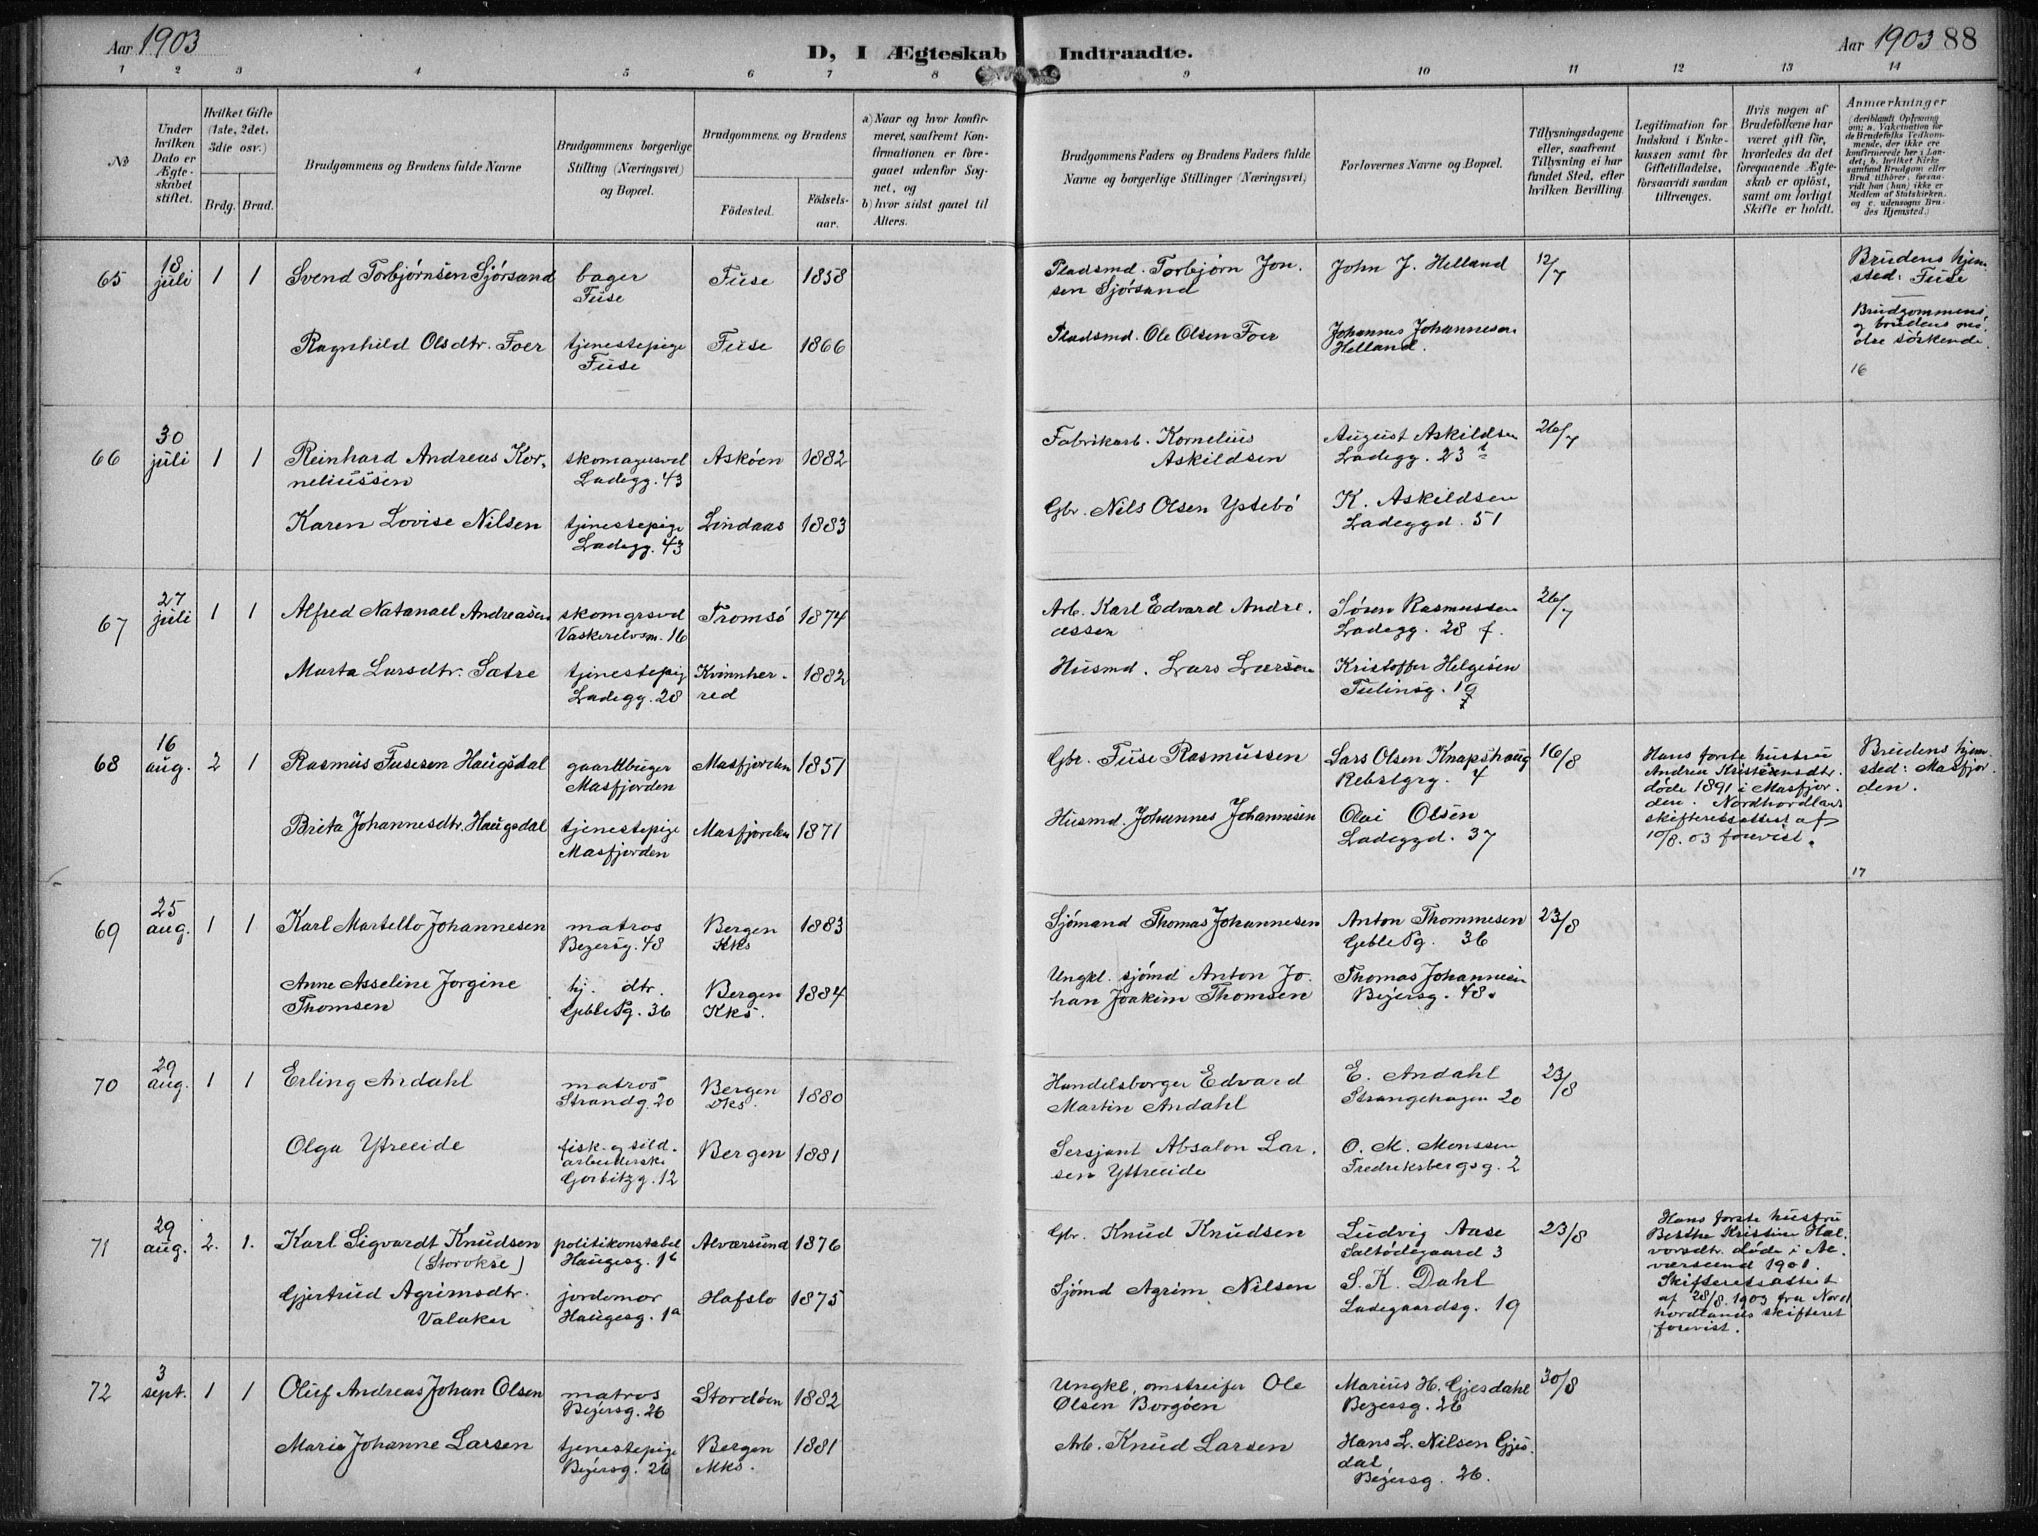 Aar 1903
D, I Ægteskab Indtraadte.
Aar 1903 88
1 2 3 4 5 6 7 8 9 10 11 12 13 14
No
Under hvilken Dato er Ægteskabet stiftet.
Hvilket Gifte (1ste, 2det, 3die osv.)
Brdg. Brud.
Brudgommens og Brudens fulde Navne
Brudgommens borgerlige Stilling (Næringsvei) og Bopæl.
Brudgommens og Brudens
Födested.
Födselsaar.
a) Naar og hvor konfirmeret, saafremt Konfirmationen er foregaaet udenfor Sognet, og
b) hvor sidst gaaet til Alters.
Brudgommens Faders og Brudens Faders fulde Navne og borgerlige Stillinger (Næringsvei)
Forlovernes Navne og Bopæl.
Tillysningsdagene eller, saafremt Tillysning ei har fundet Sted, efter hvilken Bevilling.
Legitimation for Indskud i Enkekassen samt for Giftetilladelse, forsaavidt saadan tiltrænges.
Hvis nogen af Brudefolkene har været gift för, hvorledes da det foregaaende Ægteskab er oplöst, samt om lovligt Skifte er holdt.
Anmærkninger
(deriblandt Oplysning om: a. Vakcination for de Brudefolks Vedkommende, der ikke ere konfirmerede her i Landet; b. hvilket Kirkesamfund Brudgom eller Brud tilhörer, forsaavidt han (hun) ikke er Medlem af Statskirken, og c. udensogns Brudes Hjemsted.)
65 18 juli 1 1 Svend Torbjørnsen Sjørsand bager Fuse Fuse 1858
Pladsmd. Torbjørn Jonsen Sjørsand John J. Helland 12/7 Brudens hjemsted: Fuse
Ragnhild Olsdtr. Foer tjenestepige Fuse Fuse 1866
Pladsmd. Ole Olsen Foer Johannes Johannesen Helland. Brudgommens og brudens mødre søskende.
16
66 30 juli 1 1 Reinhard Andreas Korneliussen skomagersvd Ladegg. 43 Askøen 1882
Fabrikarb. Kornelius Askildsen August Askildsen Ladegg. 23 26/7
Karen Lovise Nilsen tjenestepige Ladegg. 43 Lindaas 1883
Gbr. Nils Olsen Ystebø K. Askildsen Ladeggd. 51
67 27 juli 1 1 Alfred Natanael Andreasen skomgrsvd Vaskerelvsm. 16 Tromsø 1874
Arb. Karl Edvard Andreassen Søren Rasmussen Ladegg. 28 f. 26/7
Marta Larsdtr. Sætre tjenestepig Ladegg. 28 Kvinnherred 1882
Husmd. Lars Larsen Kristoffer Helgesen Tulinsg. 19
68 16 aug. 2 1 Rasmus Fusesen Haugsdal gaardbruger Masfjorden Masfjorden 1851
Gbr. Fuse Rasmussen Lars Olsen Knapshaug Rebslgrg. 4 16/8
Hans første hustru Andrea Kristensdtr. døde 1891 i Masfjorden. Nordhordlans skifteretsattest af 10/8.03 forevist.
Brudens hjemsted: Masfjorden.
Brita Johannesdtr. Haugsdal tjenestepige Masfjorden Masfjorden 1871
Husmd. Johannes Johannesen Olai Olsen Ladeggd. 37
17
69 25 aug. 1 1 Karl Martello Johannesen matros Beyersg. 48 Bergen Kks 1883
Sjømand Thomas Johannesen Anton Thommesen Geble Pg. 36 23/8
Anne Asseline Jorgine Thomsen hj. dtr. Geble Pg. 36 Bergen Kks. 1884
Ungkl. sjømd Anton Johan Joakim Thomsen Thomas Johannesen Beyersg. 48.
70 29 aug. 1 1 Erling Andahl matros Strandg. 20 Bergen Dks. 1880
Handelsborger Edvard Martin Andahl E. Andahl Strangehagen 20 23/8
Olga Ytreeide fisk- og sildarbeiderske Gorbitzg. 12 Bergen 1881
Sersjant Absalon Larsen Yttreeide O. M. Monssen Fredriksbergsg. 2
71 29 aug. 2. 1. Karl Sigvardt Knudsen (Storokse) politikonstabel Haugesg. 1a Alværsund 1876
Gbr. Knud Knudsen Ludvig Aase Saltødegaard 3 23/8
Hans første hustru Berthe Kristine Halvorsdtr. døde i Alværsund 1901. Skifteretsattest af 28/8.1903 fra Nordhordlands skifteret forevist.
Gjertrud Agrimsdtr. Valaker jordemor Haugesg. 1a Hafslo 1875
Sjømd Agrim Nilsen S. K. Dahl Ladegaardsg. 19
72 3 sept. 1 1 Oluf Andreas Johan Olsen matros Beyersg. 26 Stordøen 1882
Ungkl. omstreifer Ole Olsen Borgøen Marius H. Gjesdahl Beyersg. 26 30/8
Marie Johanne Larsen tjenestepige Beyersg. 26 Bergen Mks. 1881
Arb. Knud Larsen Hans L. Nilsen Gjesdal Beyersg. 26.